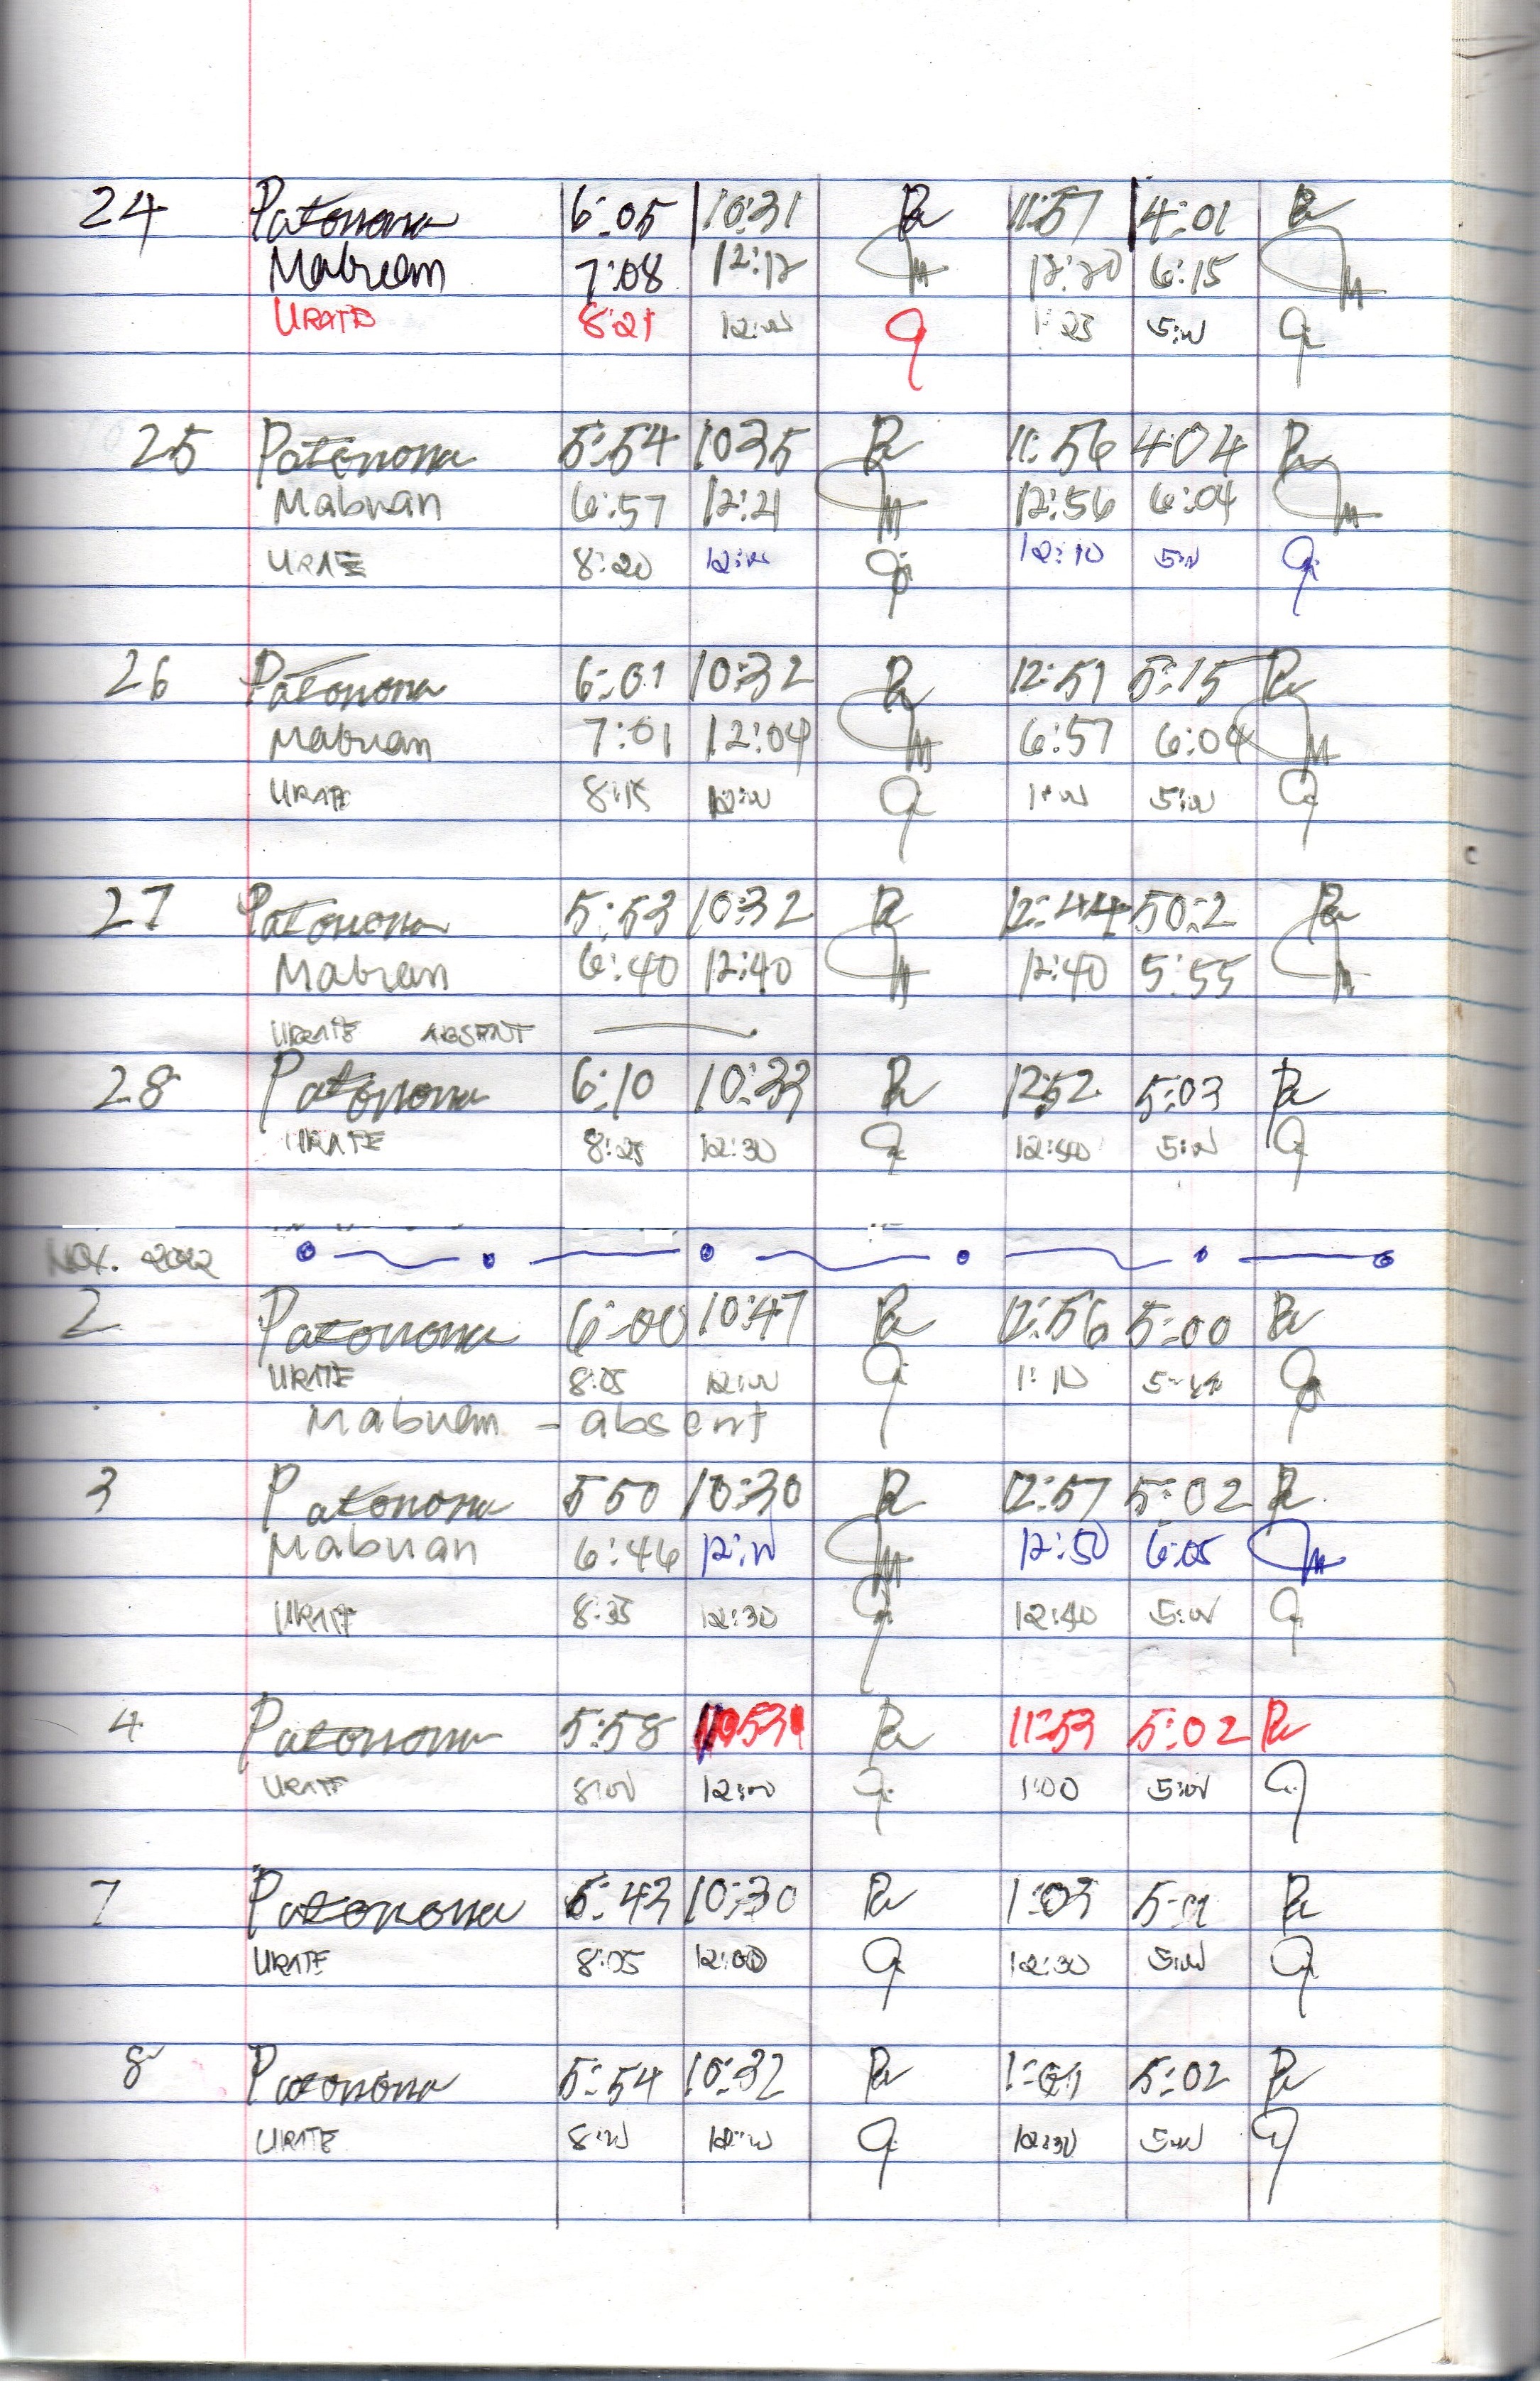 24 Patonona 6:05 10:31 11:57 4:01
Mabuan 7:08 12:12 12:20 6:15
URATE 8:21 12:00 1:25 5:00
25 Patonona 5:54 1035 11:56 4:04
Mabuan 6:57 12:21 12:56 6:04
URATE 8:20 12:00 12:10 5:00
26 Patonona 6:01 10:32 12:51 5:15
Mabuan 7:01 12:04 6:57 6:04
URATE 8:15 12:00 1:00 5:00
27 Patonona 5:53 10:32 12:44 50:2
Mabuan 6:40 12:40 12:40 5:55
URATE ABSENT
28 Patonona 6:10 10:33 12:52 5:03
URATE 8:25 12:30 12:40 5:00
NOV. 2022
2 Patonona 6:00 10:47 12:56 5:00
URATE 8:05 12:00 1:10 5:00
Mabuan - absent
3 Patonona 550 10:30 12:57 5:02
Mabuan 6:46 12:10 12:50 6:05
URATE 8:35 12:30 12:40 5:00
4 Patonona 5:58 11:53 5:02
URATE 8:00 12:00 1:00 5:00
7 Patonona 5:43 10:30 1:03 5:01
URATE 8:05 12:00 12:30 5:00
8 Patonona 5:54 10:32 1:01 5:02
URATE 8:00 12:00 12:30 5:00